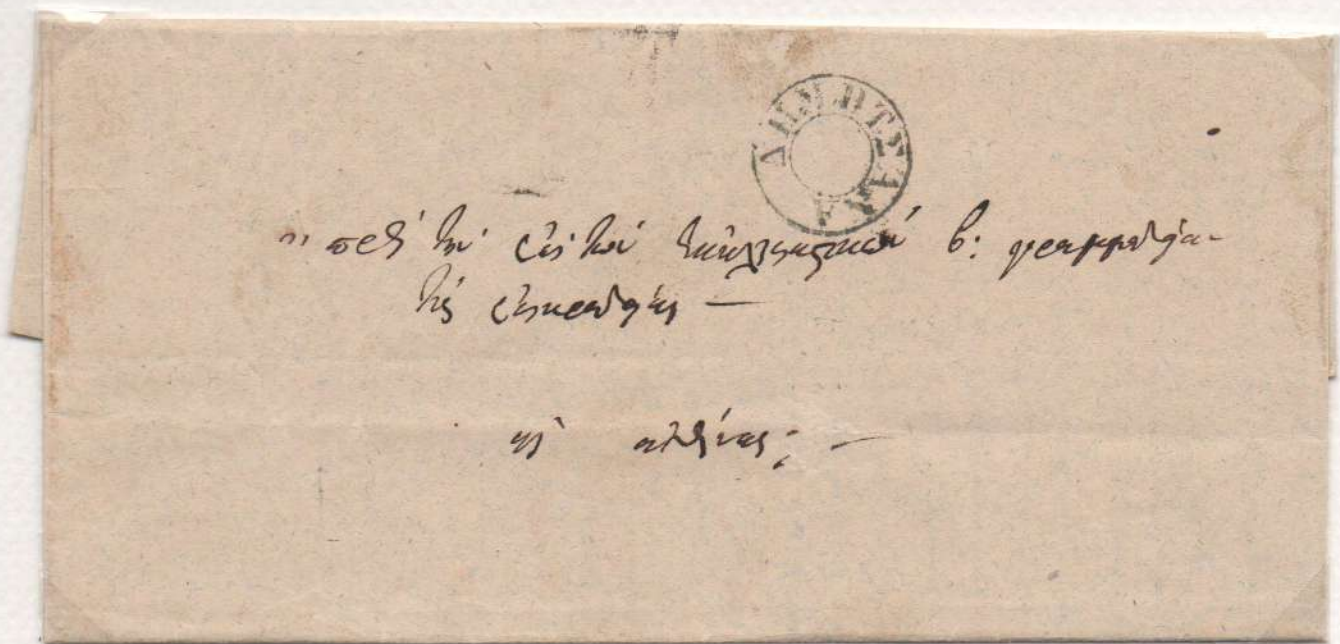 ΔΗΜΗΤΣΑΝΑ
πρὸς τὴν ἐπὶ τῶν ἐκκλησιαστικῶν β: γραμματείαν
τῆς ἐπικρατείας —
εἰς ἀθήνας; —